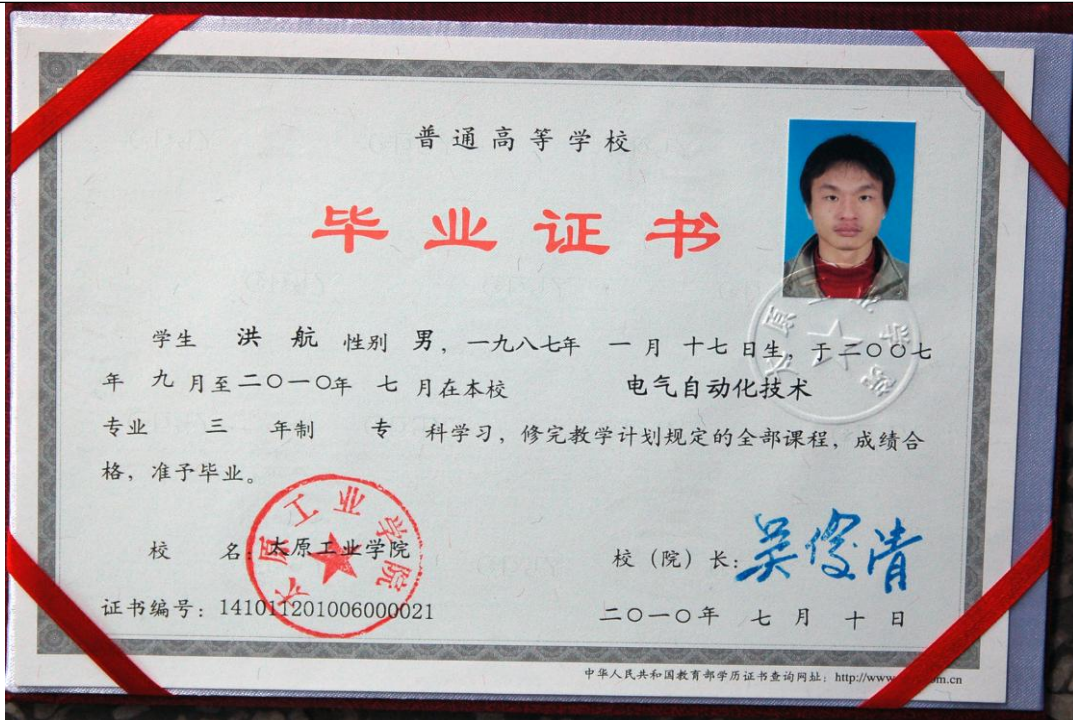 普通高等学校
毕业证书
学生 洪航 性别 男，一九八七年 一月十七日生，于二〇〇七
年九月至二〇一〇年 七月在本校 电气自动化技术
专业 三 年制 专 科学习，修完教学计划规定的全部课程，成绩合
格，准予毕业。
太原工业学院
校 名：太原工业学院
校（院）长：吴俊清
证书编号：141011201006000021
二〇一〇年 七月十日
中华人民共和国教育部学历证书查询网址：http://www
m.cn